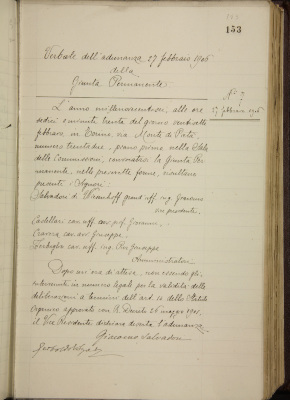 153
Verbale dell'adunanza 27 febbraio 1906
della
Giunta Permanente
N° 7
27 febbraio 1906
L'anno millenovecentosei, alle ore
sedici e minuti trenta del giorno ventisette
febbraio, in Torino, via Monte di Pietà,
numero trentadue, piano primo nella Sala
delle Commissioni, convocatasi la Giunta Per
manente, nelle prescritte forme, risultano
presenti i Signori:
Salvadori di Wiesenhoff comm. uff. ing. Giacomo
vice presidente,
cav. uff. prof. Giovanni
cav. Giuseppe
cav. uff. ing. Giuseppe
Amministratori
Dopo un'ora di attesa, non essendo gli
intervenuti in numero legale per la validità delle
deliberazioni a termini dell'art. 10 dello Statuto
organico approvato con R. Decreto 26 maggio 1901,
il Vice Presidente dichiara deserta l'adunanza.
Giacomo Salvadori